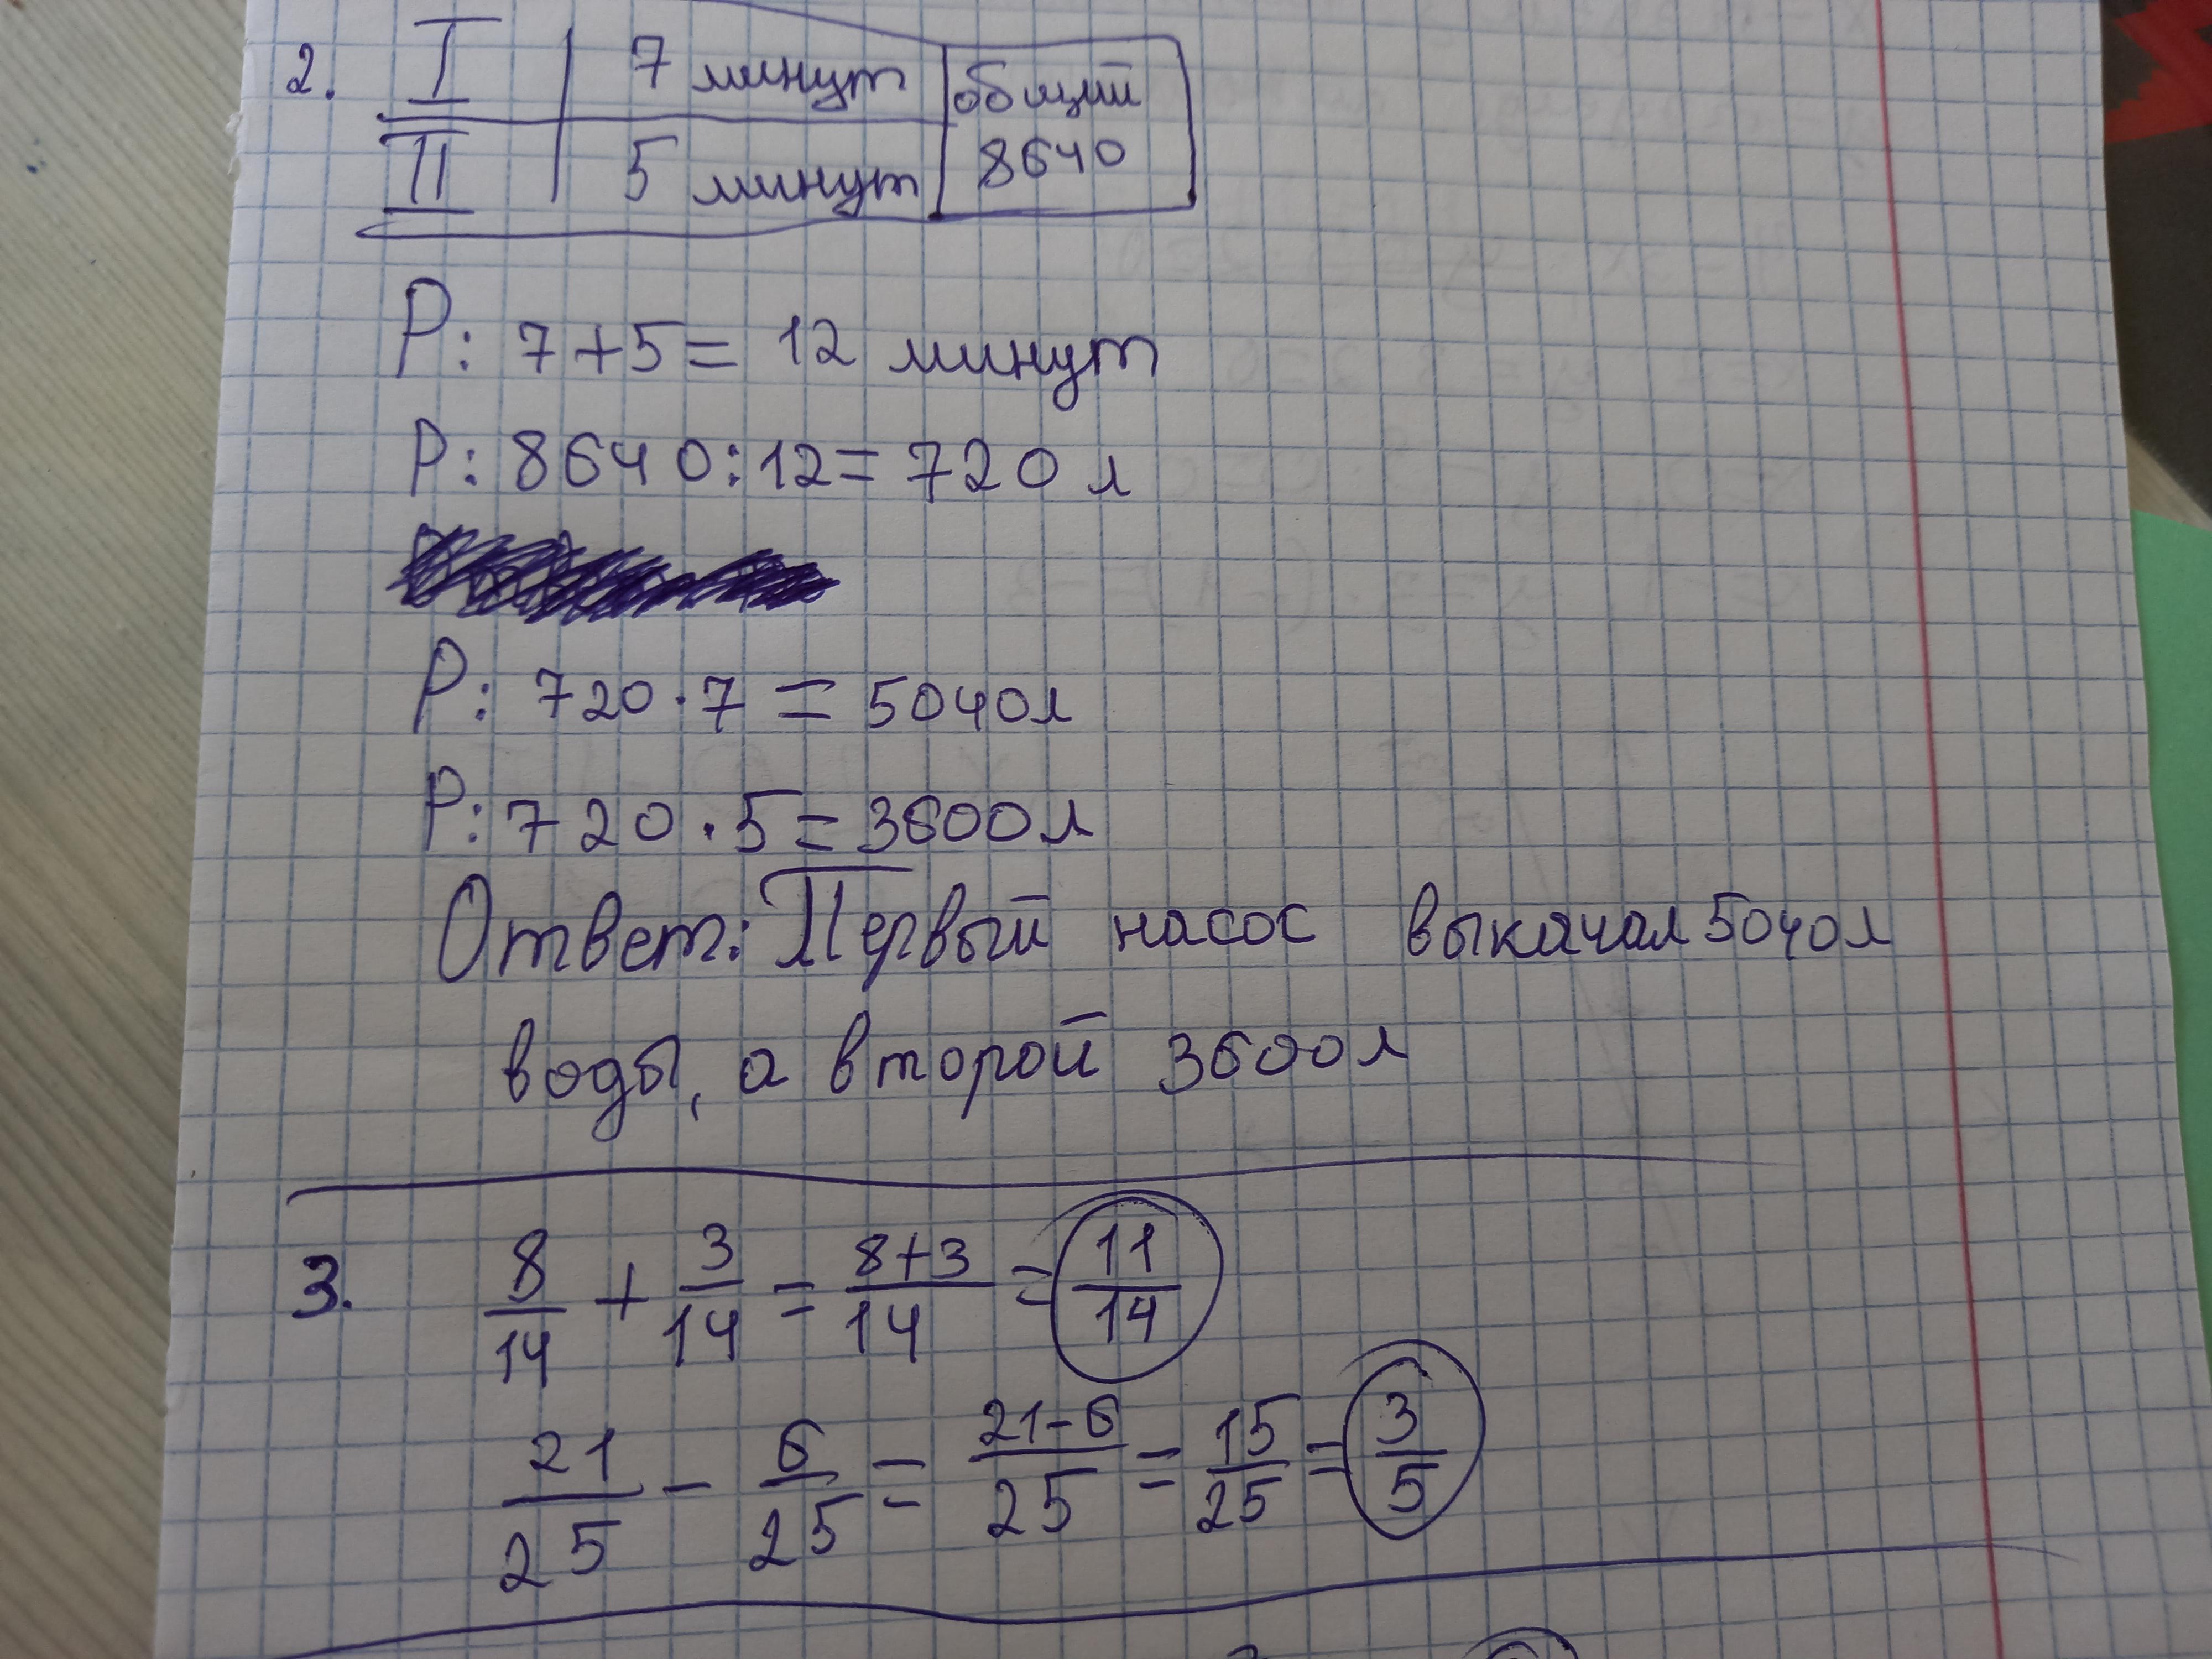 2. I 7 минут общий
II 5 минут 8640
Р: 7+5= 12 минут
Р: 8640:12=720 л
Р: 720·7 = 5040л
Р: 720·5=3600л
Ответ: Первый насос выкачал 5040л
воды, а второй 3600л
3. 8/14 + 3/14 = 8+3/14 = 11/14
21/25 - 6/25 = 21-6/25 = 15/25 = 3/5